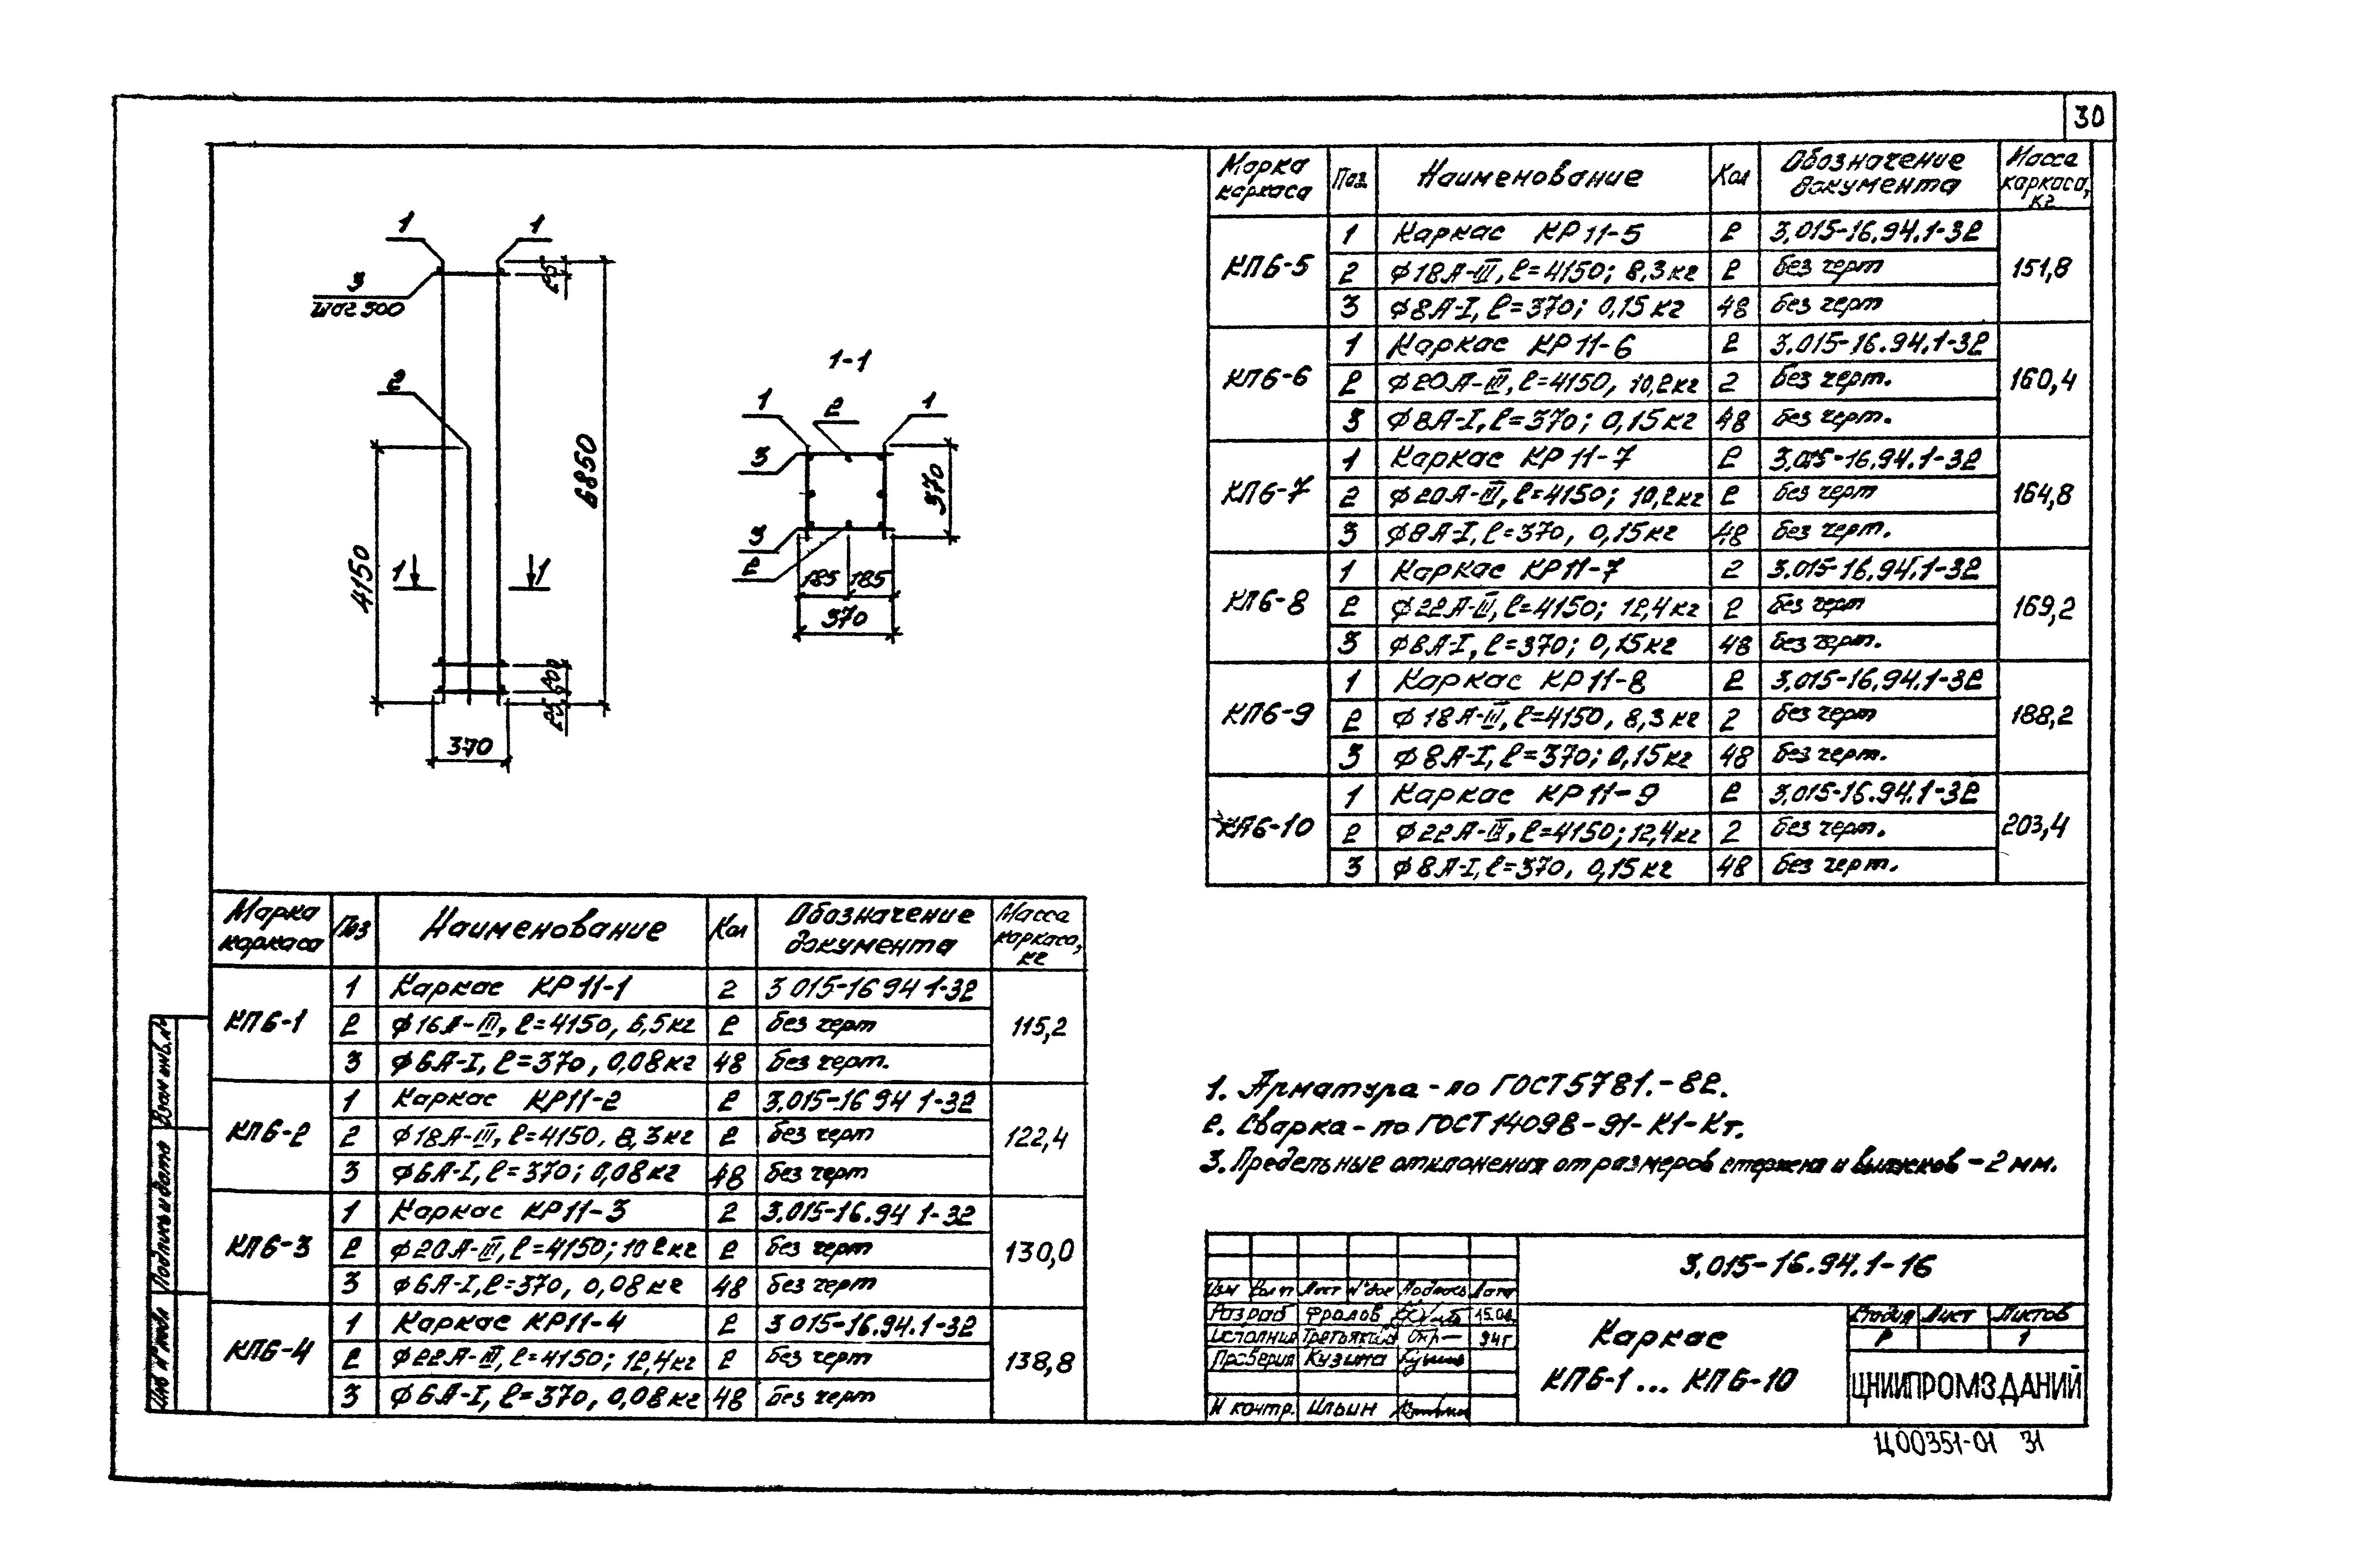 30
1
1
3
шаг 500
25
2
6850
4150
1
1
200
25
370
1-1
1
2
1
3
3
2
370
185
185
370
Марка каркаса Поз. Наименование Кол Обозначение документа Масса каркаса, кг
КП6-5 151,8
1 Каркас КР11-5 2 3.015-16.94.1-32
2 Ф18А-III, ℓ=4150; 8,3кг 2 без черт
3 Ф8А-I, ℓ=370; 0,15кг 48 без черт
КП6-6 160,4
1 Каркас КР11-6 2 3.015-16.94.1-32
2 Ф20А-III, ℓ=4150, 10,2кг 2 без черт.
3 Ф8А-I, ℓ=370; 0,15кг 48 без черт.
КП6-7 164,8
1 Каркас КР11-7 2 3.015-16.94.1-32
2 Ф20А-III, ℓ=4150; 10,2кг 2 без черт
3 Ф8А-I, ℓ=370, 0,15кг 48 без черт.
КП6-8 169,2
1 Каркас КР11-7 2 3.015-16.94.1-32
2 Ф22А-III, ℓ=4150; 12,4кг 2 без черт
3 Ф8А-I, ℓ=370; 0,15кг 48 без черт.
КП6-9 188,2
1 Каркас КР11-8 2 3.015-16.94.1-32
2 Ф18А-III, ℓ=4150, 8,3кг 2 без черт
3 Ф8А-I, ℓ=370; 0,15кг 48 без черт.
КП6-10 203,4
1 Каркас КР11-9 2 3.015-16.94.1-32
2 Ф22А-III, ℓ=4150; 12,4кг 2 без черт.
3 Ф8А-I, ℓ=370, 0,15кг 48 без черт.
Марка каркаса Поз Наименование Кол Обозначение документа Масса каркаса, кг
КП6-1 115,2
1 Каркас КР11-1 2 3 015-16 94 1-32
2 Ф16А-III, ℓ=4150, 6,5кг 2 без черт
3 Ф6А-I, ℓ=370, 0,08кг 48 без черт.
КП6-2 122,4
1 Каркас КР11-2 2 3.015-16 94 1-32
2 Ф18А-III, ℓ=4150, 8,3кг 2 без черт
3 Ф6А-I, ℓ=370; 0,08кг 48 без черт
КП6-3 130,0
1 Каркас КР11-3 2 3.015-16.94 1-32
2 Ф20А-III, ℓ=4150; 10 2кг 2 без черт
3 Ф6А-I, ℓ=370, 0,08кг 48 без черт
КП6-4 138,8
1 Каркас КР11-4 2 3 015-16.94.1-32
2 Ф22А-III, ℓ=4150; 12,4кг 2 без черт
3 Ф6А-I, ℓ=370, 0,08кг 48 без черт
1. Арматура - по ГОСТ 5781.-82.
2. Сварка - по ГОСТ 14098-91-К1-Кт.
3. Предельные отклонения от размеров стержня и выпусков - 2 мм.
3.015-16.94.1-16
Изм Кол п Лист N°док Подпись Дата
Разраб Фролов 15.04.
Исполнил Третьякова 94г
Проверил Кузина
Н контр. Ильин
Каркас
КП6-1 ... КП6-10
Стадия Лист Листов
Р 1
ЦНИИПРОМЗДАНИЙ
Взам инв. N
Подпись и дата
Инв N° подл
Ц00351-01 31